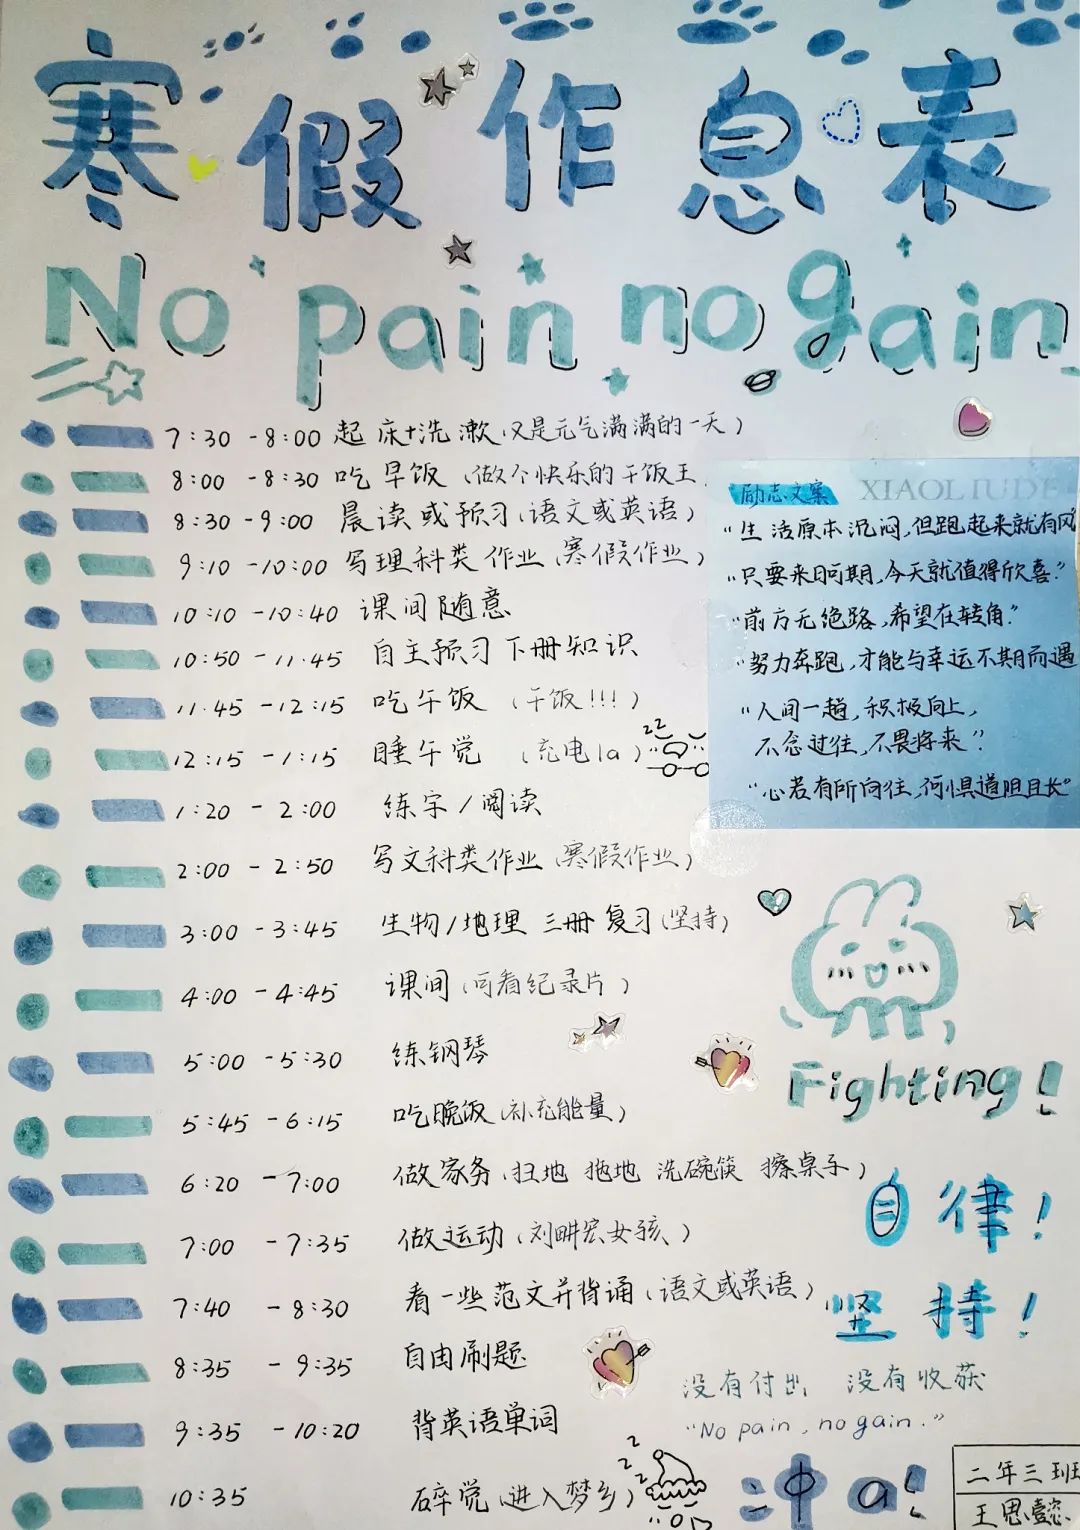 寒假作息表
No pain no gain
7:30 -8:00 起床+洗漱(又是元气满满的一天)
8:00 -8:30 吃早饭(做个快乐的干饭王
8:30 -9:00 晨读或预习(语文或英语)
9:10 -10:00 写理科类作业(寒假作业)
10:10 -10:40 课间随意
10:50 -11.45 自主预习下册知识
11.45 -12:15 吃午饭 (干饭!!!)
12:15 -1:15 睡午觉 (充电la)
zz
1:20 - 2:00 练字/阅读
2:00 - 2:50 写文科类作业(寒假作业)
3:00 -3:45 生物/地理 三册复习(坚持)
4:00 -4:45 课间(可看纪录片)
5:00 -5:30 练钢琴
5:45 -6:15 吃晚饭(补充能量)
6:20 -7:00 做家务(扫地 拖地 洗碗筷 擦桌子)
7:00 -7:35 做运动(刘畊宏女孩)
7:40 -8:30 看一些范文并背诵(语文或英语)
8:35 -9:35 自由刷题
9:35 -10:20 背英语单词
10:35 碎觉(进入梦乡)
zzz
励志文案 XIAOLIUDE
"生活原本沉闷,但跑起来就有风
"只要来日可期,今天就值得欣喜."
"前方无绝路,希望在转角"
"努力奔跑,才能与幸运不期而遇
"人间一趟,积极向上,
不念过往,不畏将来"
"心若有所向往,何惧道阻且长"
Fighting!
自律!
坚持!
没有付出 没有收获
"No pain, no gain."
冲a!
二年三班
王思懿